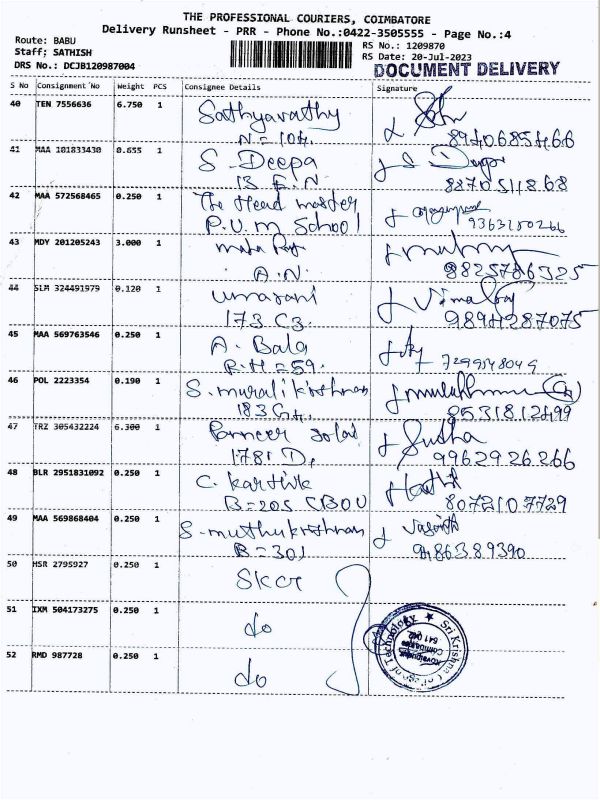 THE PROFESSIONAL COURIERS, COIMBATORE
Delivery Runsheet - PRR - Phone No.:0422-3505555 - Page No.:4
Route: BABU
Staff; SATHISH
DRS No.: DCJB120987004
RS No.: 1209870
RS Date: 20-Jul-2023
DOCUMENT DELIVERY
S No Consignment No Weight PCS Consignee Details Signature
40 TEN 7556636 6.750 1 Sathyavathy
N=104. 8940685466
41 MAA 101833430 0.655 1 S. Deepa
13 E.N 8870511868
42 MAA 572568465 0.250 1 The Head master
P.U.M School 9363280266
43 MDY 201205243 3.000 1 Maha
A.N. 8825786325
44 SLM 324491979 0.120 1 Umarani
173 C3. 9894287075
45 MAA 569763546 0.250 1 A. Bala
R.H=59. 7299548049
46 POL 2223354 0.190 1 S. muralikrishnan
183 G4. 8531812499
47 TRZ 305432224 6.300 1 Solai Sutha
1781 D, 9962926266
48 BLR 2951831092 0.250 1 C. Karthik
B=205 CBOU 8072107729
49 MAA 569868404 0.250 1 S. muthukrishnan
B=301 9486389390
50 HSR 2795927 0.250 1 SKCT
51 IXM 504173275 0.250 1 do
52 RMD 987728 0.250 1 do
Sri Krishna College of Technology
Kovaipudur
Coimbatore
641 042